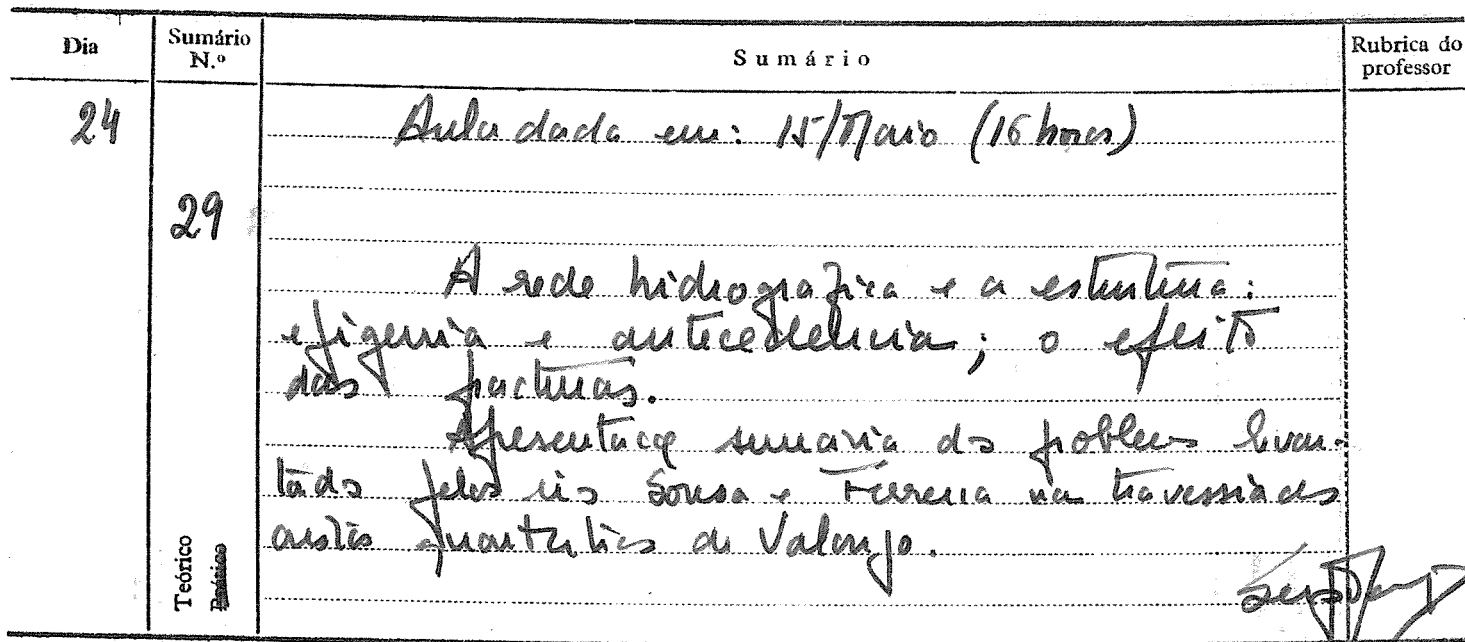 Dia Sumário N.º Sumário Rubrica do professor
24 Aula dada em: 15/Maio (16 horas)
29
A rede hidrografica e a estrutura:
epigenia e antecedencia; o efeito
das fracturas.
Apresentação sumária do problema levan-
tado pelos rios Sousa e Ferreira na travessia das
cristas quartzíticas de Valongo.
Teórico
Prático